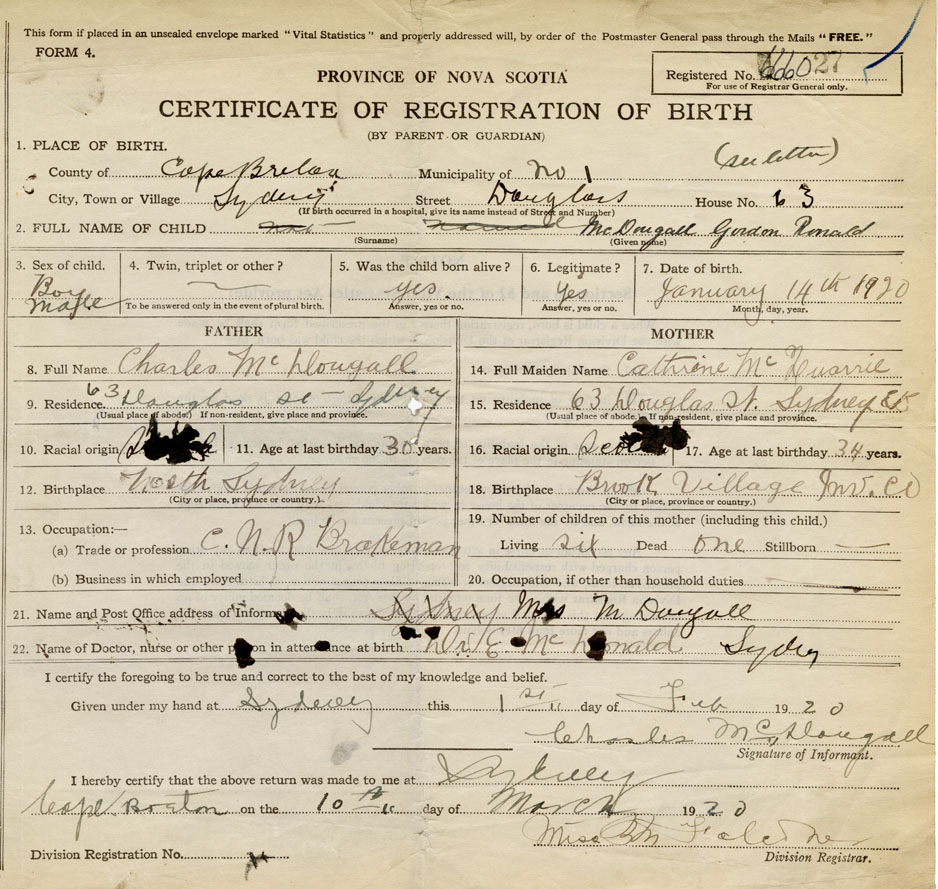 This form if placed in an unsealed envelope marked "Vital Statistics" and properly addressed will, by order of the Postmaster General pass through the Mails "FREE."
FORM 4.
Registered No. 66027
For use of Registrar General only.
PROVINCE OF NOVA SCOTIA
CERTIFICATE OF REGISTRATION OF BIRTH
(BY PARENT OR GUARDIAN)
1. PLACE OF BIRTH. (see letter)
County of Cape Breton Municipality of No 1
City, Town or Village Sydney Street Douglass House No. 63
(If birth occurred in a hospital, give its name instead of Street and Number)
2. FULL NAME OF CHILD McDougall Gordon Ronald
(Surname) (Given name)
3. Sex of child. Boy Magle
4. Twin, triplet or other?
To be answered only in the event of plural birth.
5. Was the child born alive? yes.
Answer, yes or no.
6. Legitimate? Yes
Answer, yes or no.
7. Date of birth. January 14th 1920
Month, day, year.
FATHER
8. Full Name Charles McDougall
9. Residence 63 Douglas St - Sydney
(Usual place of abode. If non-resident, give place and province.
10. Racial origin 11. Age at last birthday 30 years.
12. Birthplace North Sydney
(City or place, province or country.)
13. Occupation:—
(a) Trade or profession C.N.R Brakeman
(b) Business in which employed
MOTHER
14. Full Maiden Name Cathrine McQuarrie
15. Residence 63 Douglas St. Sydney CB
(Usual place of abode.) If non-resident, give place and province.
16. Racial origin 17. Age at last birthday 34 years.
18. Birthplace Brook Village Inv. CO
(City or place, province or country.)
19. Number of children of this mother (including this child.)
Living six Dead one Stillborn —
20. Occupation, if other than household duties
21. Name and Post Office address of Informant Sydney Mrs McDougall
22. Name of Doctor, nurse or other person in attendance at birth Dr. E McDonald Sydney
I certify the foregoing to be true and correct to the best of my knowledge and belief.
Given under my hand at Sydney this 1st day of Feb 1920
Charles McDougall
Signature of Informant.
I hereby certify that the above return was made to me at Sydney
Cape Breton on the 10th day of March 1920
Miss
Division Registrar.
Division Registration No.